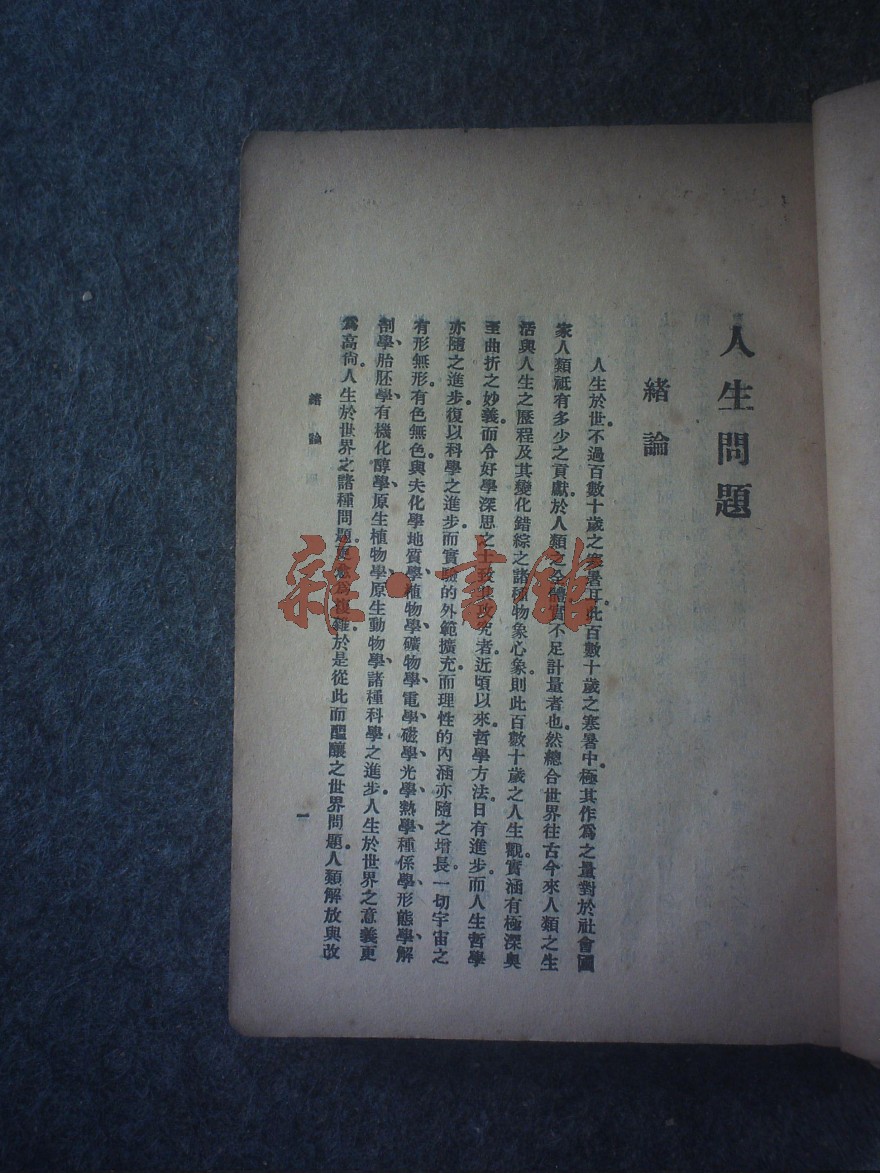 人生問題
緒論
人生於世。不過百數十歲之寒暑耳。此百數十歲之寒暑中。極其作爲之量。對於社會國
家人類。祇有多少之貢獻。於人類之全體。實不足計量者也。然總合世界往古今來人類之生
活與人生之歷程及其變化錯綜之諸種物象心象。則此百數十歲之人生觀。實涵有極深奧
至曲折之妙義。而令好學深思之士致其攻究者。近頃以來。哲學方法。日有進步。而人生哲學
亦隨之進步。復以科學之進步。而實驗的外範擴充。而理性的內涵亦隨之增長。一切宇宙之
有形無形。有色無色。與夫化學、地質學、植物學、礦物學、電學、磁學、光學、熱學、種係學、形態學、解
剖學、胎胚學、有機化醇學、原生植物學、原生動物學、諸種科學之進步。人生於世界之意義更
爲高尙。人生於世界之諸種問題。更愈爲複雜。於是從此而醞釀之世界問題。人類解放與改
緒論
一
雜·書館